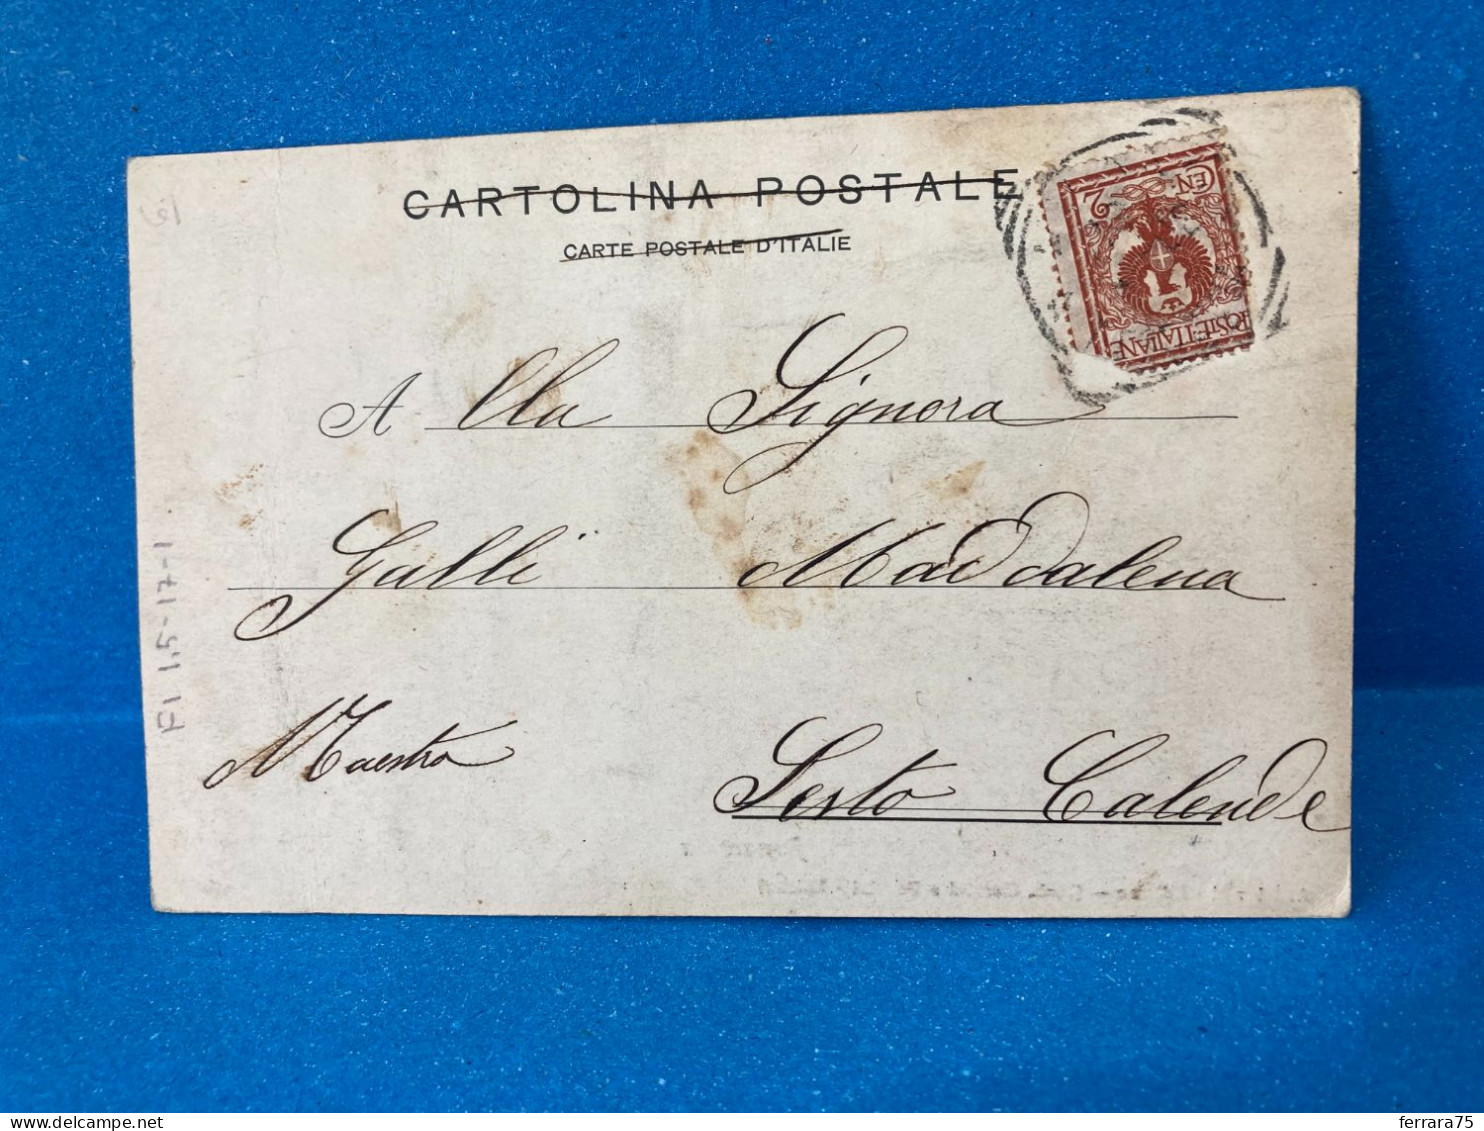 CARTOLINA POSTALE
CARTE POSTALE D'ITALIE
CEN 2
POSTE·ITALIANE
Alla Signora
Galli Maddalena
Maestra Sesto Calende
F1 1,5-17-1
ferrara75